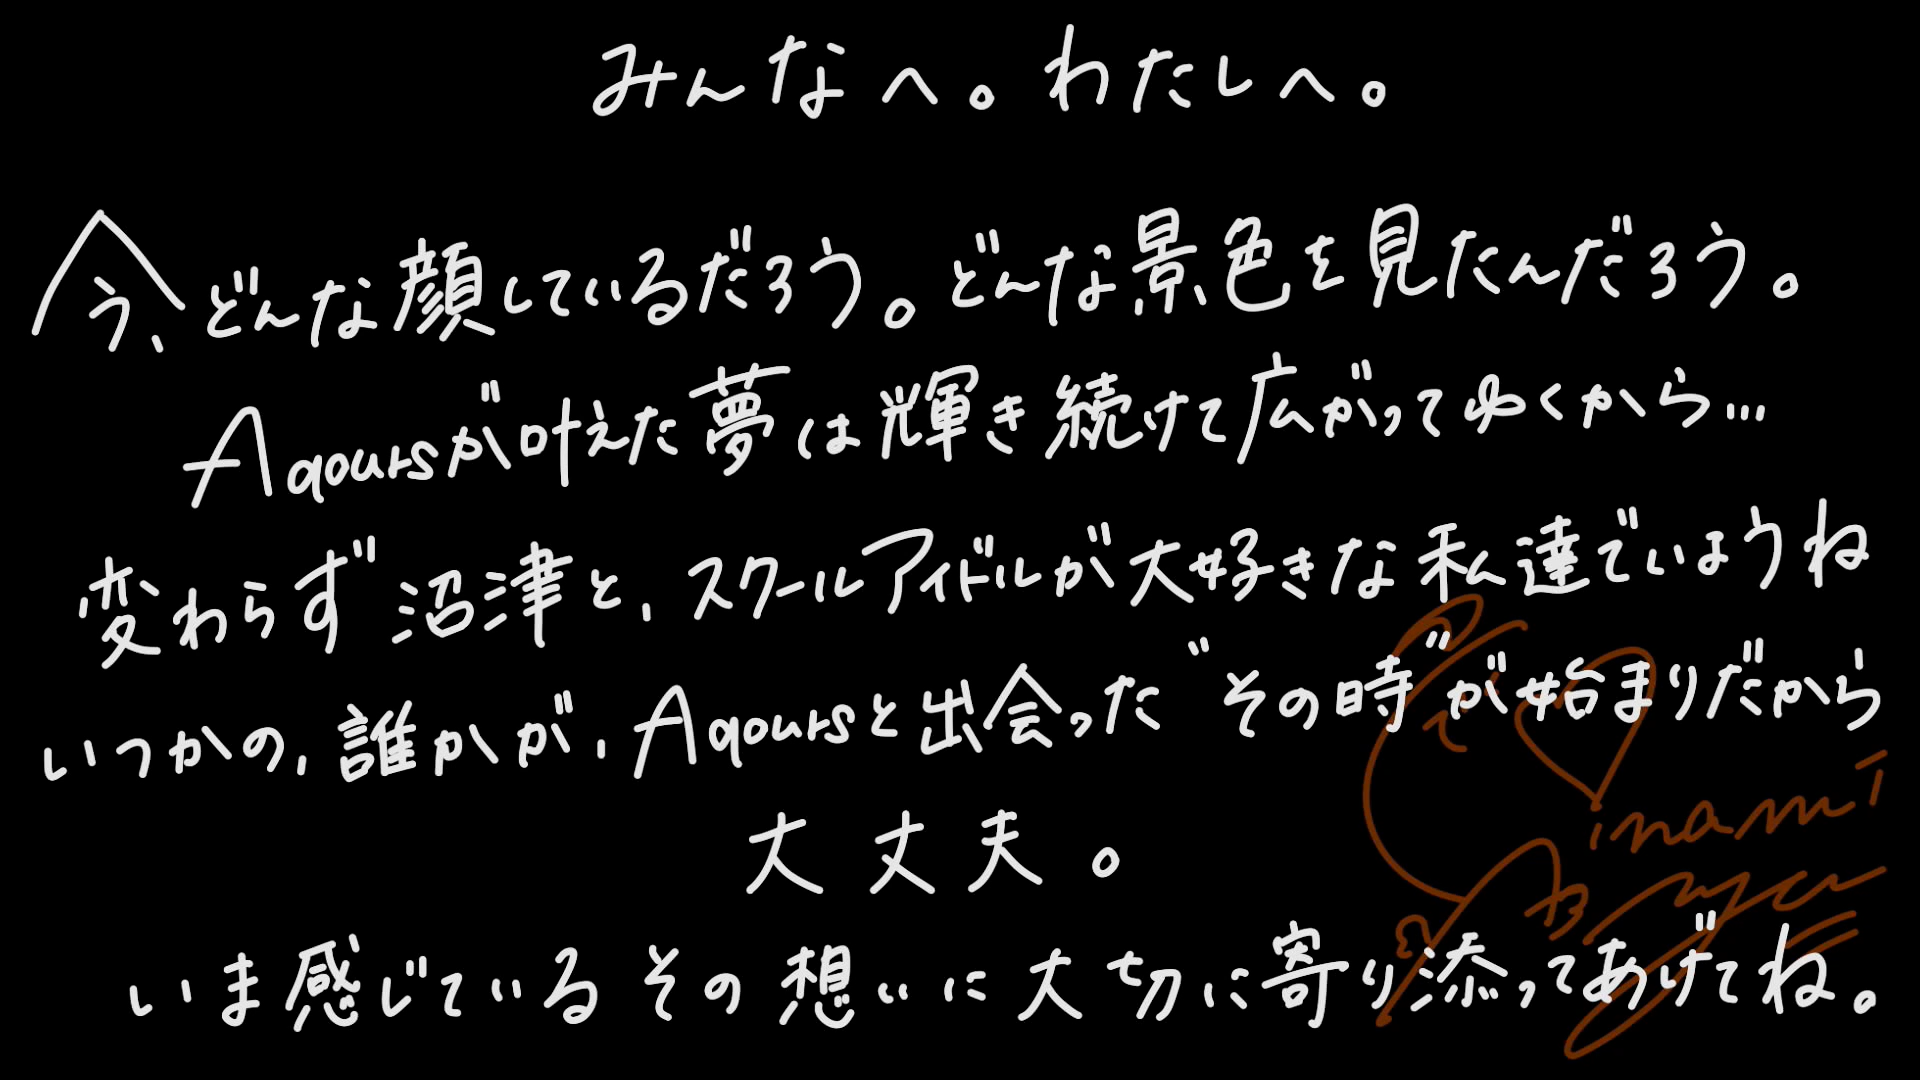 みんなへ。わたしへ。
今、どんな顔しているだろう。どんな景色を見たんだろう。
Aqoursが叶えた夢は輝き続けて広がってゆくから…
変わらず沼津と、スクールアイドルが大好きな私達でいようね
いつかの、誰かが、Aqoursと出会った"その時"が始まりだから
大丈夫。
いま感じているその想いに大切に寄り添ってあげてね。